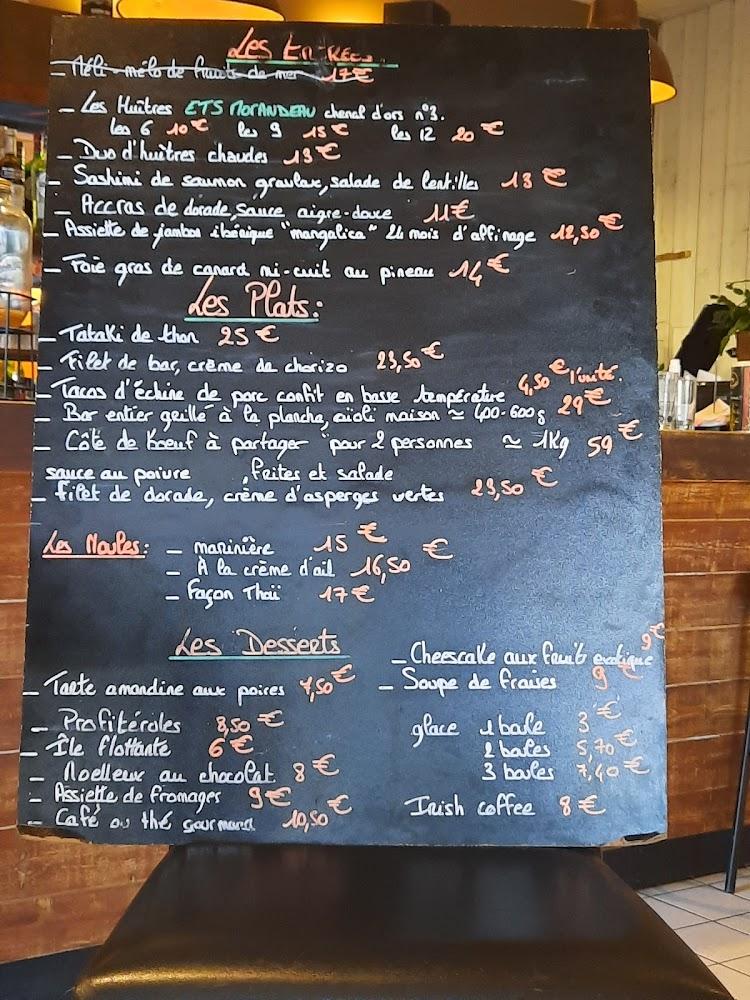 Les Entrées
- Méli-mélo de fruits de mer 17€
- Les Huîtres ETS MORANDEAU chenal d'ors n°3.
les 6 10€ les 9 15€ les 12 20€
- Duo d'huîtres chaudes 13€
- Sashimi de saumon gravlax, salade de lentilles 13€
- Accras de dorade, sauce aigre-douce 11€
- Assiette de jambon ibérique "mangalica" 24 mois d'affinage 12,50€
- Foie gras de canard mi-cuit au pineau 14€
Les Plats:
- Tataki de thon 25€
- Filet de bar, crème de chorizo 23,50€
- Tacos d'échine de porc confit en basse température 4,50€ l'unité.
- Bar entier grillé à la planche, aïoli maison ≃ 400-600g 29€
- Côte de boeuf à partager "pour 2 personnes ≃ 1Kg 59€
sauce au poivre, frites et salade
- Filet de dorade, crème d'asperges vertes 23,50€
Les Moules:
- marinière 15€
- À la crème d'ail 16,50€
- Façon Thaï 17€
Les Desserts
- Tarte amandine aux poires 7,50€
- Profitéroles 8,50€
- Île flottante 6€
- Moelleux au chocolat 8€
- Assiette de fromages 9€
- Café ou thé gourmand 10,50€
- Cheescake aux fruits exotique 9€
- Soupe de fraises 9€
glace 1 boule 3€
2 boules 5,70€
3 boules 7,40€
Irish coffee 8€